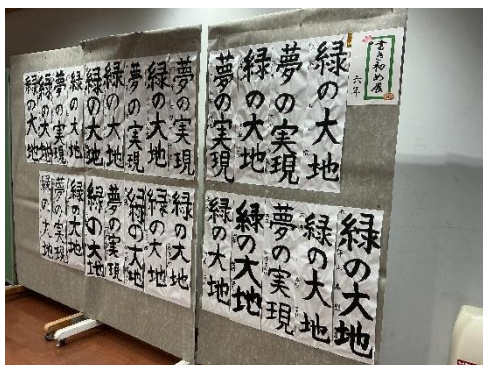 書き初め展
六年
緑の大地
夢の実現
緑の大地
夢の実現
夢の実現
緑の大地
夢の実現
緑の大地
緑の大地
緑の大地
夢の実現
緑の大地
緑の大地
緑の大地
緑の大地
夢の実現
緑の大地
緑の大地
緑の大地
緑の大地
緑の大地
夢の実現
緑の大地
緑の大地
夢の実現
緑の大地